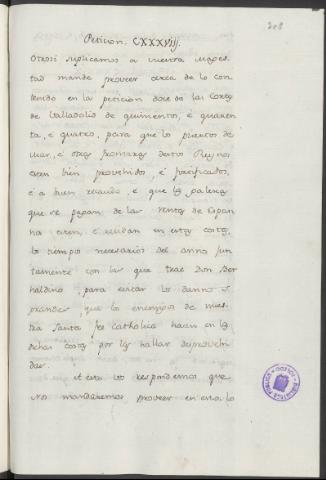 Peticion. CXXXVIIj.
Otrosi suplicamos a vuestra Mages-
tad mande proveer cerca de lo con-
tenido en la peticion doce de las Cortes
de Valladolid de quinientos, é quaren-
ta, é quatro, para que los puertos de
mar, é otras fronteras destos Reynos
esten bien provehidos, é fortificados,
é a buen recaudo, é que las galeras
que se pagan de las rentas de Espan-
na esten, é residan en estas costas,
los tiempos necesarios del anno jun-
tamente con las que trae Don Ber
naldino, para evitar los dannos
grandes, que los enemigos de nues-
tra Santa Fee Catholica hacen en las
dichas costas por las hallar desprovehi-
das.
A esto vos respondemos, que
Nos mandaremos proveer en esto lo